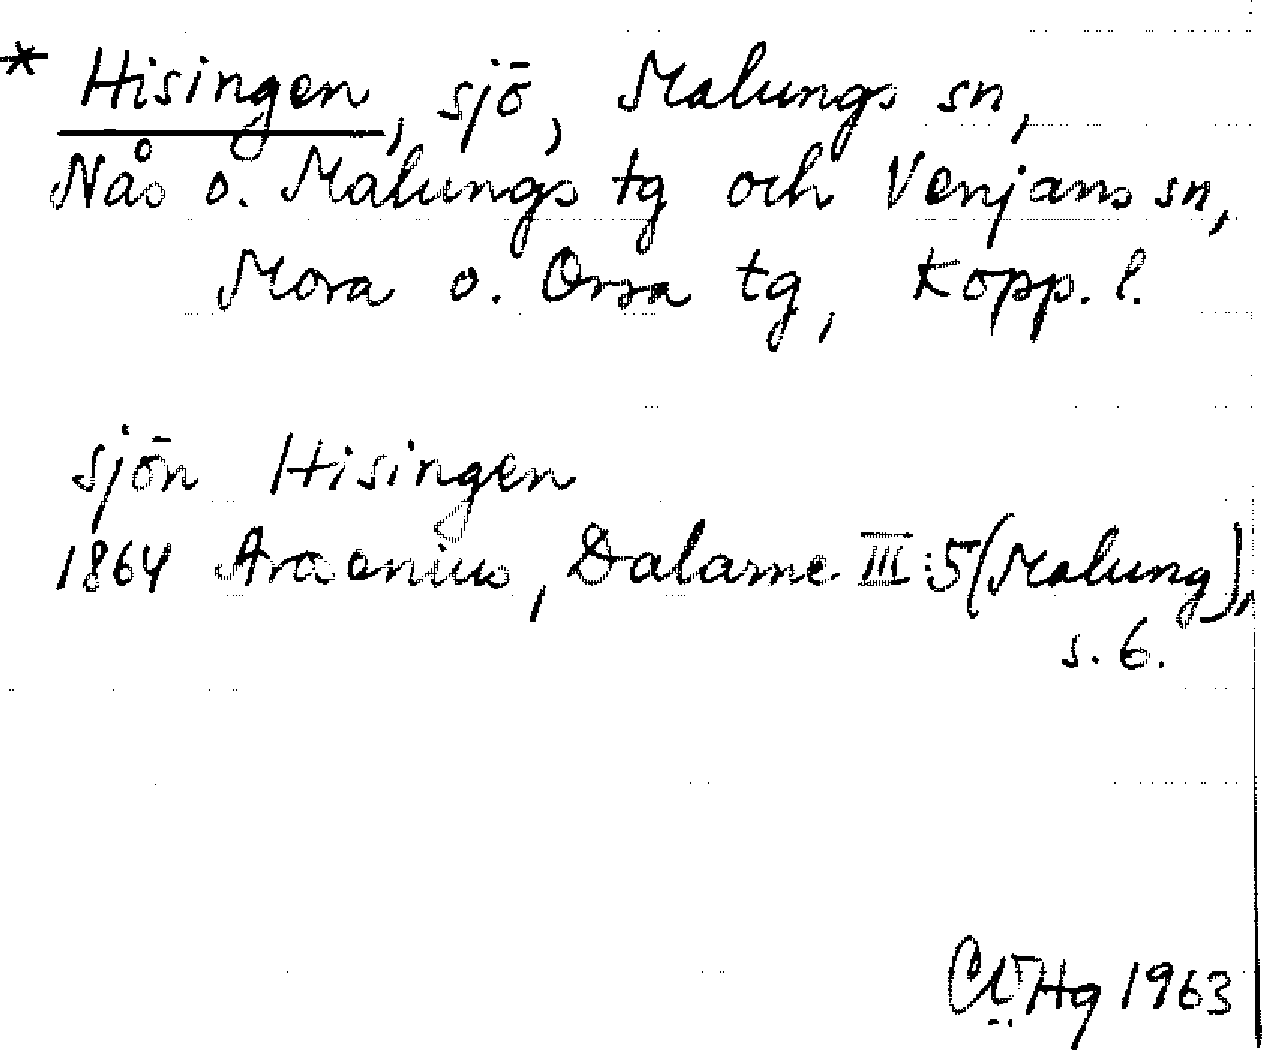 * Hisingen, sjö, Malungs sn,
Nås o. Malungs tg och Venjans sn,
Mora o. Orsa tg, Kopp. l.
sjön Hisingen
1864 Arosenius, Dalarne III:5 (Malung),
s. 6.
Hg 1963